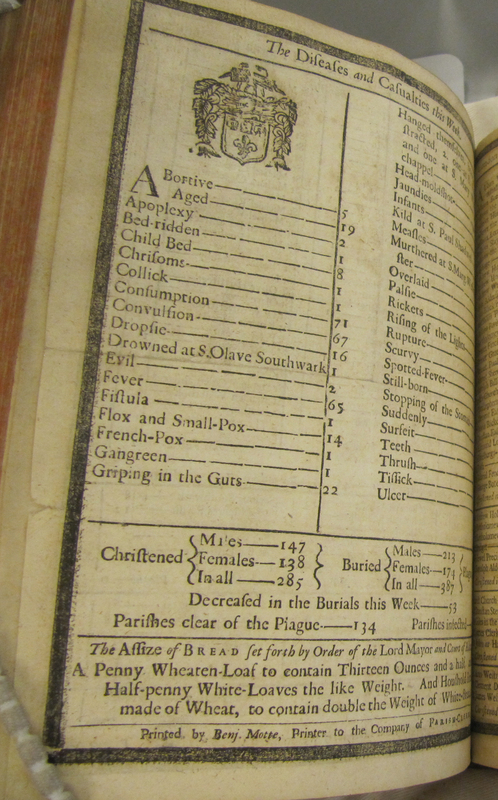 The Diſeaſes and Caſualties this Week
ABortive — 5
Aged — 19
Apoplexy — 2
Bed-ridden — 1
Child Bed — 8
Chriſoms — 1
Collick — 1
Conſumption — 71
Convulſion — 67
Dropſie — 16
Drowned at S. Olave Southwark 1
Evil — 2
Fever — 65
Fiſtula — 1
Flox and Small-Pox — 14
French-Pox — 1
Gangreen — 1
Griping in the Guts — 22
Hanged
ſtracted, 2. one
and one at S.
chappel
Head-moldſhot
Jaundies
Infants
Kild at S. Paul
Meaſles
Murthered at S.
ſter
Overlaid
Palſie
Rickets
Riſing of the Lights
Rupture
Scurvy
Spotted-Fever
Still-born
Stopping of the
Suddenly
Surfeit
Teeth
Thruſh
Tiſſick
Ulcer
Chriſtened
Males — 147
Females — 138
In all — 285
Buried
Males — 213
Females — 174
In all — 387
Decreaſed in the Burials this Week — 53
Pariſhes clear of the Plague — 134 Pariſhes infected
The Aſſize of BREAD ſet forth by Order of the Lord Mayor and Court of
A Penny Wheaten-Loaf to contain Thirteen Ounces and a half
Half-penny White-Loaves the like Weight. And Houſhold
made of Wheat, to contain double the Weight of White
Printed by Benj. Motte, Printer to the Company of PARISH-